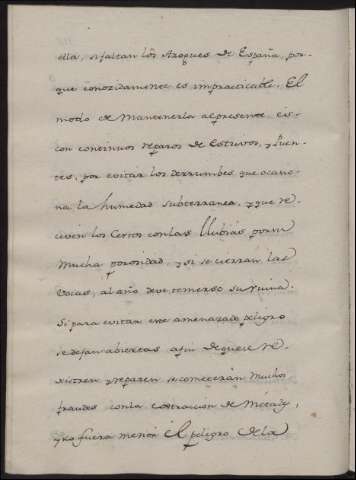 ella, si faltan los Azogues de España, por-
que conozidamente es impracticable. El
modo de Mantenerla al presente, es
con continuos reparos de Estrivos, y Puen-
tes, por evitar los derrumbes que ocasio-
na la humedad subterranea, y que re-
civen los Cerros con las llubias por su
Mucha porosidad, y si se cierran las
Vocas, al año deve temerse su ruina.
Si para evitar este amenazado peligro
se dejan abiertas a fin de que se re-
xistren y reparen se cometerán Muchos
fraudes con la extraccion de Metales,
y no fuera menor el peligro de la